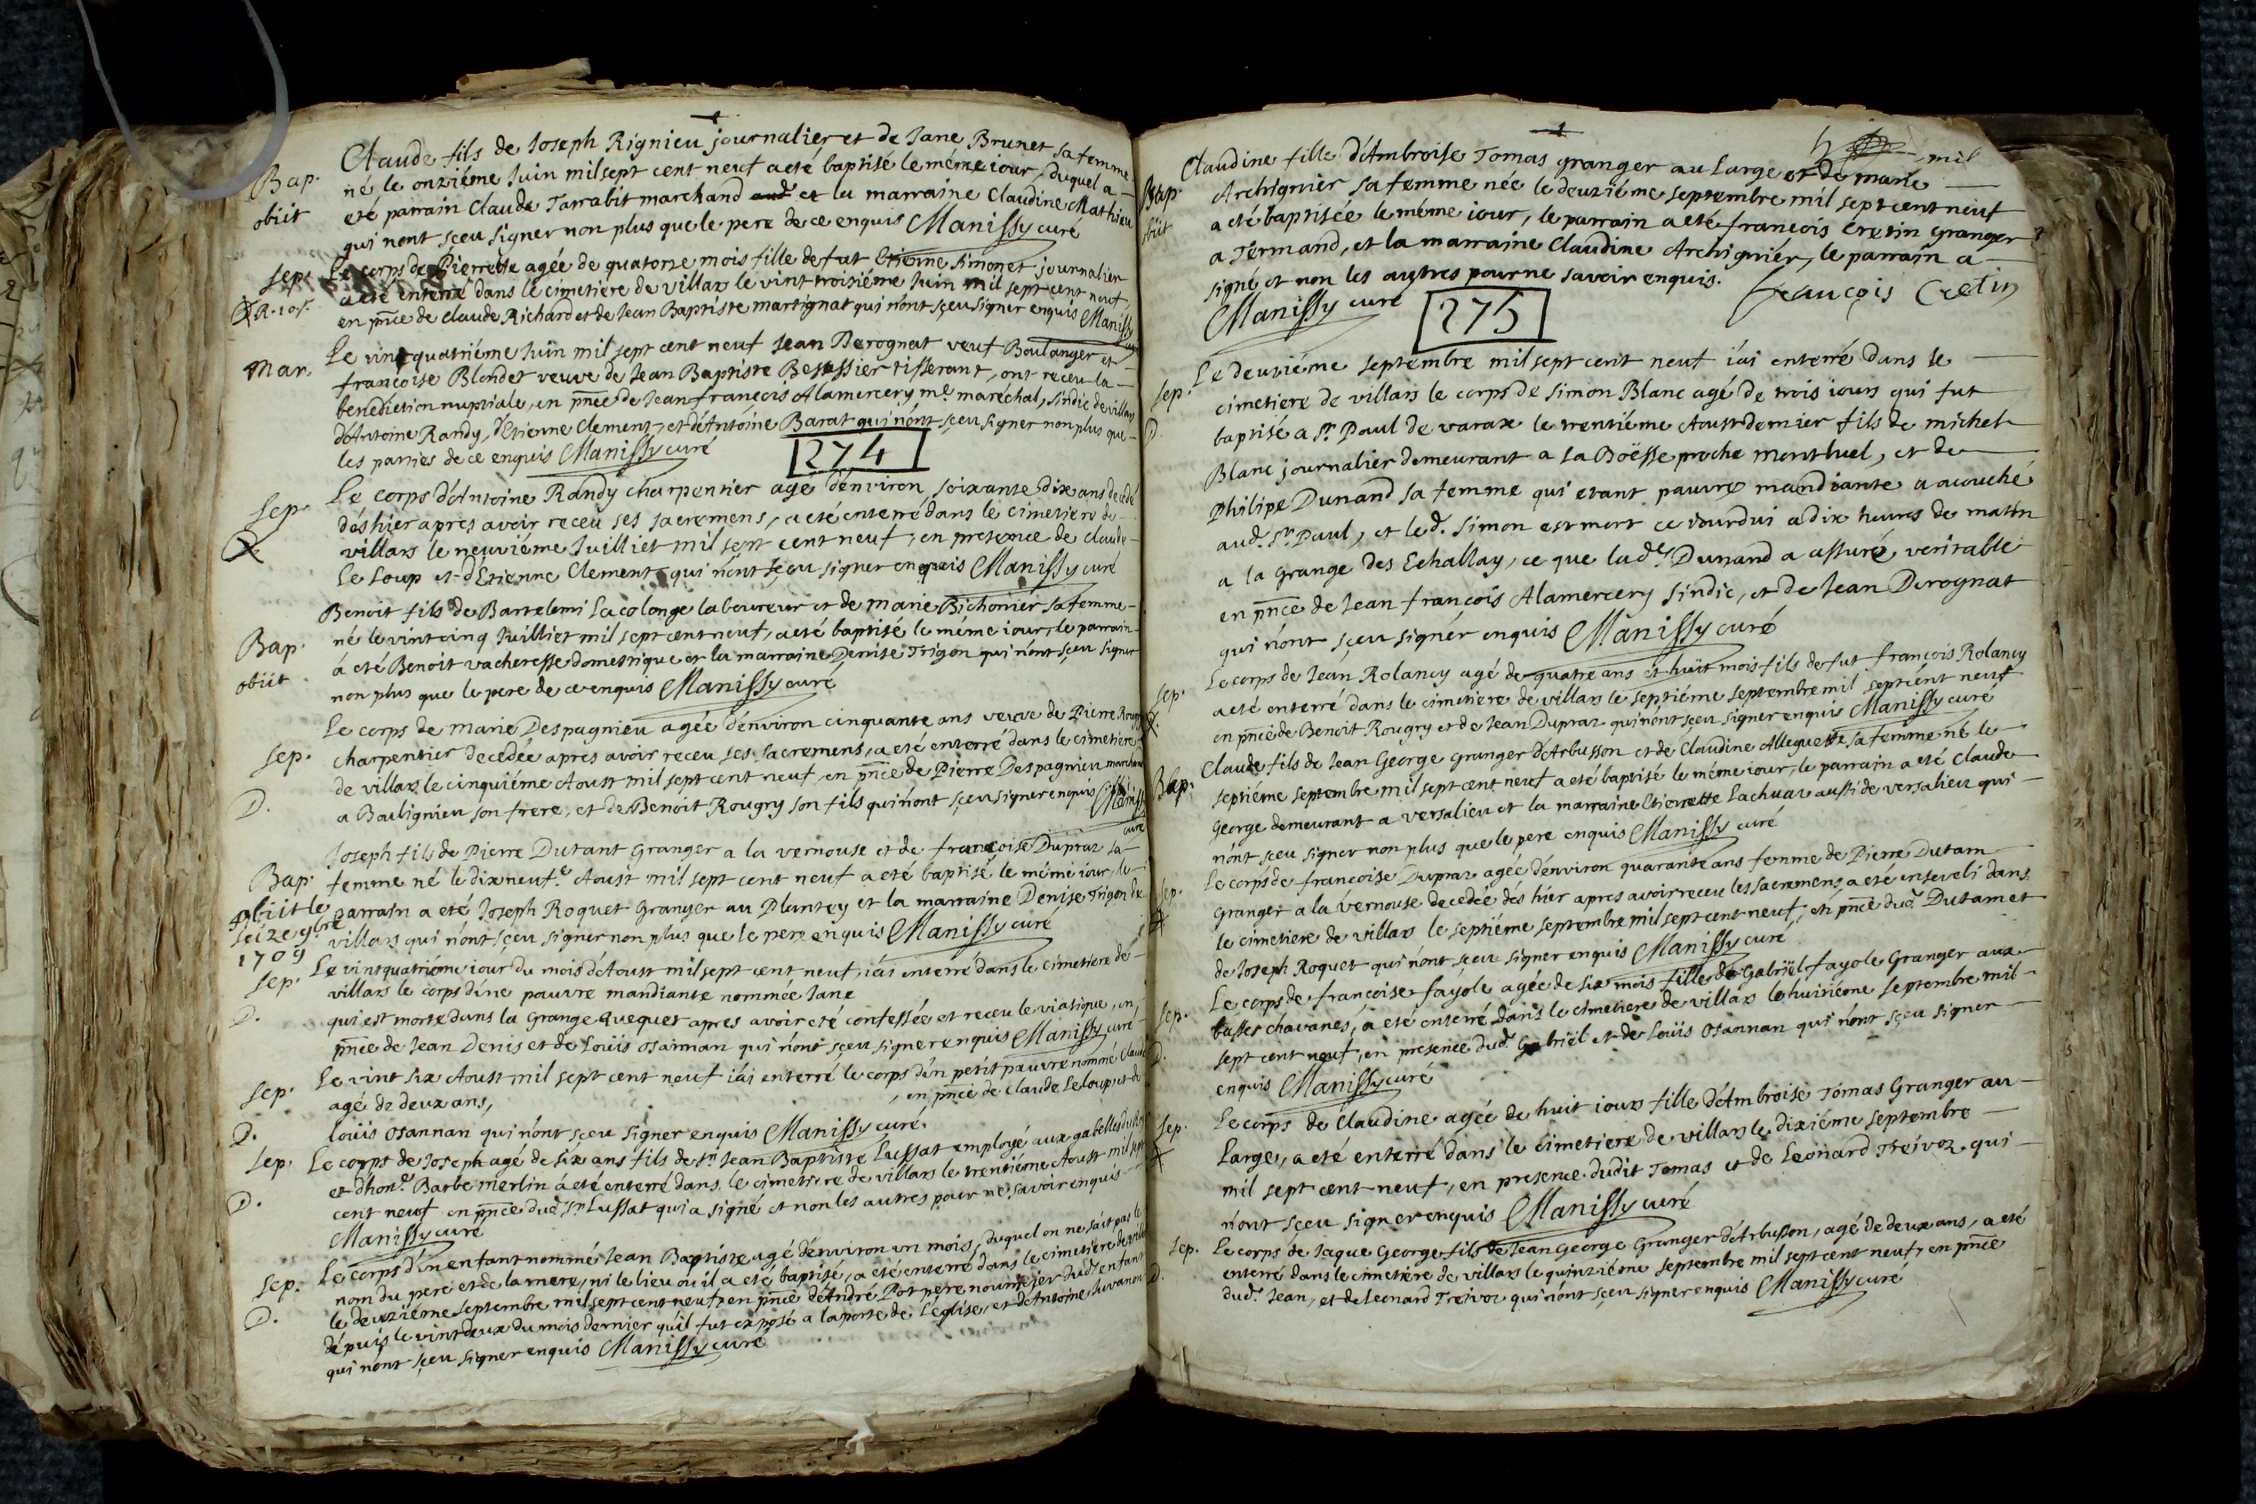 Bap. Claude fils de Joseph Rignieu journalier et de Jane Brunet sa femme
né le onziéme Juin mil sept cent neuf a eté baptisé le méme iour, duquel a
obiit eté parrain Claude Tarrabit marchand et la marraine Claudine Mathieu
qui n'ont sçeu signer non plus que le pere de ce enquis Manissy curé
Sep. Le corps de Pierrette agée de quatorze mois fille de fut Etienne Simonet journalier
a eté enterré dans le cimetiere de villars le vint troisiéme Juin mil sept cent neuf,
en pnce de Claude Richard et de Jean Baptiste martignat qui n'ont sçeu signer enquis Manissy
Mar. Le vint quatriéme Juin mil sept cent neuf Jean Derognat veuf Boulanger et
françoise Blondet veuve de Jean Baptiste Bessier tisserant, ont receu la
benediction nuptiale, en pnce de Jean françois Alamercery me maréchal, sindic de villars
d'Antoine Randy, d'Etienne Clement, et d'Antoine Barat qui n'ont sçeu signer non plus que
les parties de ce enquis Manissy curé
274
Sep. Le corps d'Antoine Randy charpentier agé d'environ soixante dix ans decedé
dés hier apres avoir receu ses sacremens, a eté enterré dans le cimetiere de
villars le neuviéme Juilliet mil sept cent neuf, en presence de Claude
Le Loup et d'Etienne Clement qui n'ont sçeu signer enquis Manissy curé
Benoit fils de Bartelemi Lacolonge laboureur et de marie Bichonier sa femme
Bap. né le vint cinq Juilliet mil sept cent neuf, a eté baptisé le méme iour, le parrain
á eté Benoit vacheresse domestique et la marraine Denise Trigon qui n'ont sçeu signer
obiit non plus que le pere de ce enquis Manissy curé
Le corps de marie Despagnieu agée d'environ cinquante ans veuve de Pierre Rougry
Sep. charpentier decedée apres avoir receu ses sacremens, a eté enterré dans le cimetiere
de villars le cinquiéme Aoust mil sept cent neuf, en pnce de Pierre Despagnieu marchand
D. a Bouligneu son frere, et de Benoit Rougry son fils qui n'ont sçeu signer enquis Manissy
curé
Joseph fils de Pierre Dutant Granger a la vernouse et de françoise Dupraz sa
Bap. femme né le dix neufe Aoust mil sept cent neuf a eté baptisé le méme iour, le
obiit le parrain a eté Joseph Roquet Granger au Plantey et la marraine Denise Trigon de
seize 9bre villars qui n'ont sçeu signer non plus que le pere enquis Manissy curé
1709
Sep. Le vint quatriéme iour du mois d'Aoust mil sept cent neuf, i'ái enterré dans le cimetiere de
villars le corps d'úne pauvre mandiante nommée Jane
D. qui est morte dans la Grange Quequet apres avoir eté confessée et receu le viatique, en
pnce de Jean Denis et de Loüis Osannan qui n'ont sçeu signer enquis Manissy curé
Sep. Le vint six Aoust mil sept cent neuf i'ái enterré le corps d'ún petit pauvre nommé Claude
agé de deux ans, , en pnce de Claude Le Loup et de
D. Loüis Osannan qui n'ont sçeu signer enquis Manissy curé.
Sep. Le corps de Joseph agé de six ans fils de sr Jean Baptiste Lussat employé aux gabelles du Roy
et d'honle Barbe merlin á eté enterré dans le cimetiere de villars le trentiéme Aoust mil sept
D. cent neuf en pnce dud. sr Lussat qui a signé et non les autres pour ne savoir enquis
Manissy curé
Sep. Le corps d'ún enfant nommé Jean Baptiste agé d'environ un mois, duquel on ne sáit pas le
nom du pere et de la mere, ni le lieu ou il a eté baptisé, a eté enterré dans le cimetiere de villars
D. le deuxiéme septembre mil sept cent neuf, en pnce d'André Pot pere nourricier dud. enfant
dépuis le vint deux du mois dernier qu'il fut exposé a la porte de L'église, et d'Antoine
qui n'ont sçeu signer enquis Manissy curé
Bap. Claudine fille d'Ambroise Tomas granger au Large et de marie
obiit Archignier sa femme née le deuxiéme septembre mil sept cent neuf
a eté baptisée le méme iour, le parrain a eté françois Cretin Granger
a Termand, et la marraine Claudine Archignier, le parrain a
signé et non les autres pour ne savoir enquis.
Manissy curé François Cretin
275
Sep. Le deuxiéme septembre mil sept cent neuf i'ái enterré dans le
cimetiere de villars le corps de Simon Blanc agé de trois iours qui fut
D. baptisé a St Paul de varax le trentiéme Aoust dernier fils de michel
Blanc journalier demeurant a La Boësse proche Montluel, et de
Philipe Dunand sa femme qui etant pauvre mandiante a acouché
aud. St Paul, et led. Simon est mort ce iourdui a dix heures de matin
a la Grange des Echallay, ce que lade Dunand a assuré veritable
en pnce de Jean françois Alamercery sindic, et de Jean Derognat
qui n'ont sçeu signér enquis Manissy curé
Sep. Le corps de Jean Rolancy agé de quatre ans et huit mois fils de fut françois Rolancy
a eté enterré dans le cimetiere de villars le septiéme septembre mil sept cent neuf
en pnce de Benoit Rougry et de Jean Dupraz qui n'ont sçeu signer enquis Manissy curé
Claude fils de Jean George granger d'Arbusson et de Claudine Alleguette sa femme né le
Bap. septiéme septembre mil sept cent neuf a eté baptisé le méme iour, le parrain a eté Claude
George demeurant a versalieu et la marraine Etiennette Lachuar aussi de versalieu qui
n'ont sçeu signer non plus que le pere enquis Manissy curé
Sep. Le corps de francoise Dupraz agée d'environ quarante ans femme de Pierre Dutam
Granger a la vernouse decedée dés hier apres avoir receu les sacremens, a eté enseveli dans
le cimetiere de villars le septiéme septembre mil sept cent neuf, en pnce dud. Dutam et
de Joseph Roquet qui n'ont sçeu signer enquis Manissy curé
Sep. Le corps de francoise fayole agée de six mois fille de Gabriël fayole Granger aux
basses chavanes, a eté enterré dans le cimetiere de villars le huitiéme septembre mil
D. sept cent neuf, en presence dud. Gabriël et de Loüis Osannan qui n'ont sçeu signer
enquis Manissy curé
Sep. Le corps de Claudine agée de huit iours fille d'Ambroise Tomas Granger au
Large, a eté enterré dans le cimetiere de villars le dixiéme septembre
mil sept cent neuf, en presence dudit Tomas et de Leonard Treivoz qui
n'ont sçeu signer enquis Manissy curé
Sep. Le corps de Jaque George fils de Jean George Granger d'Arbusson, agé de deux ans, a eté
enterré dans le cimetiere de villars le quinziéme septembre mil sept cent neuf, en pnce
D. dud. Jean, et de Leonard Treivoz qui n'ont sçeu signer enquis Manissy curé